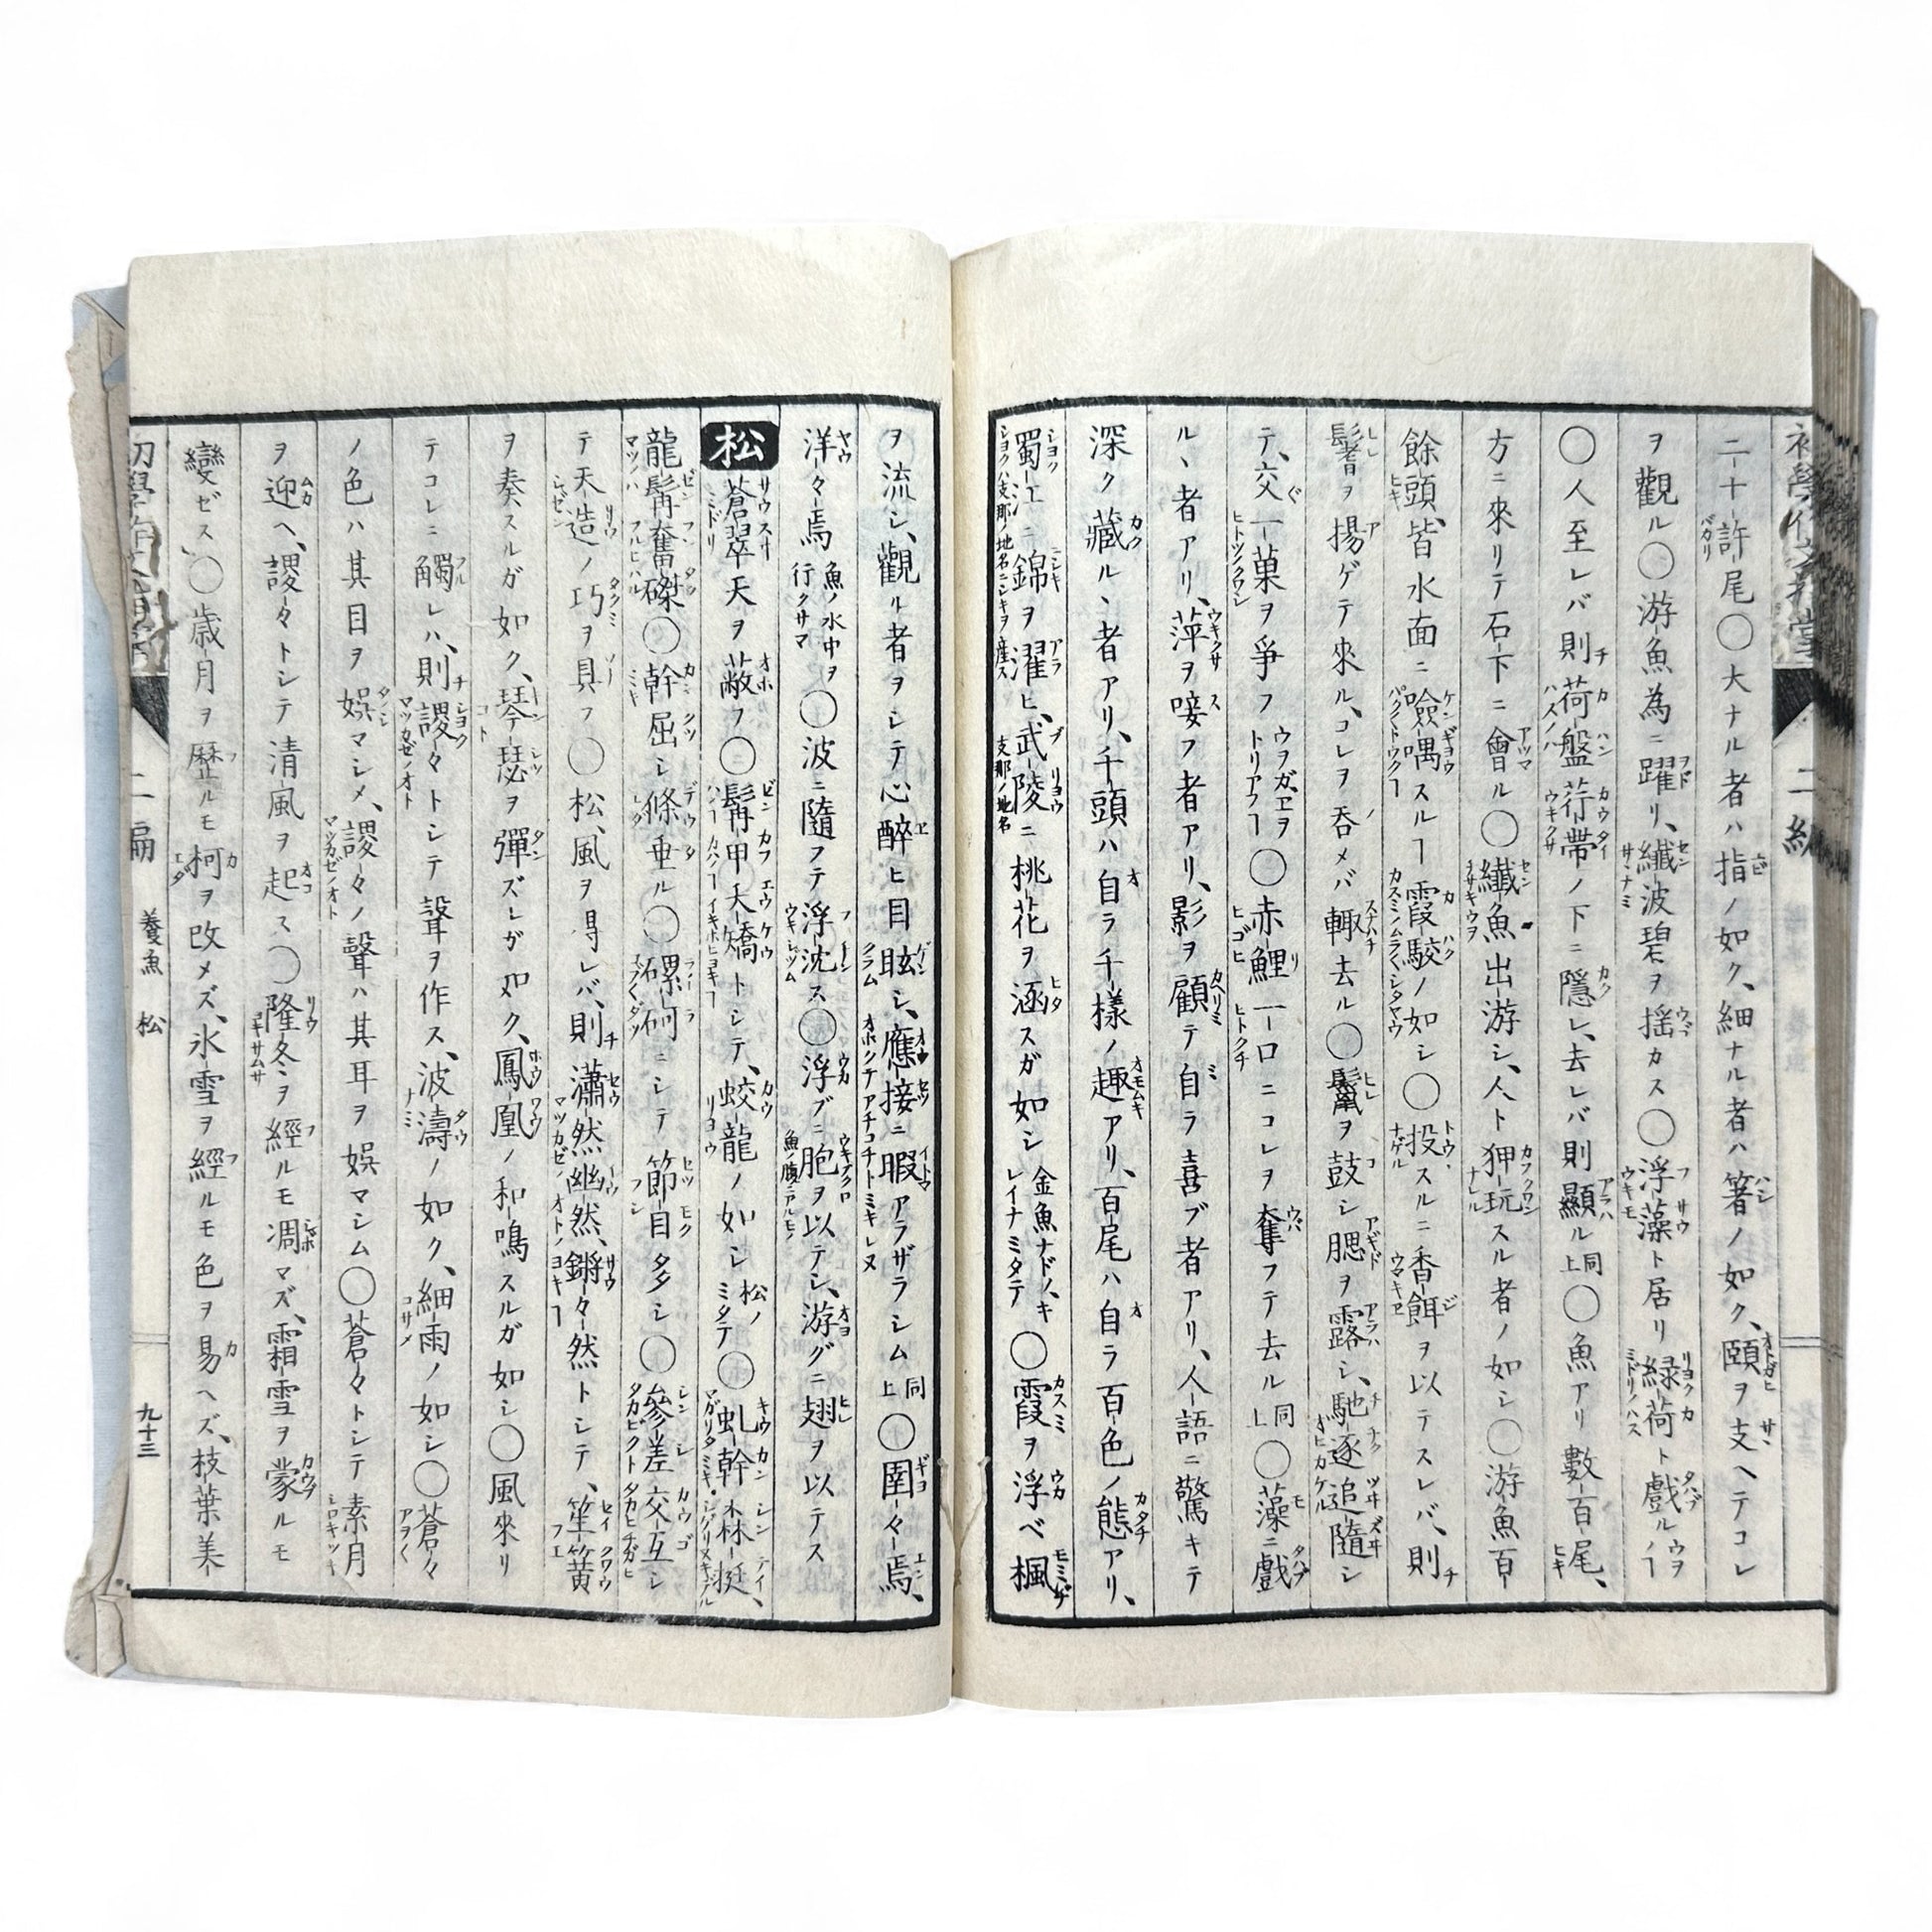 二十許尾〇大ナル者ハ指ノ如ク、細ナル者ハ箸ノ如ク、頤ヲ支ヘテコレ
ヲ觀ル〇游魚為ニ躍リ、纖波碧ヲ揺カス〇浮藻ト居リ緑荷ト戲ルヽヿ
〇人至レバ則荷盤荇帶ノ下ニ隱レ、去レバ則顯ル同上〇魚アリ數百尾、
方ニ來リテ石下ニ會ル〇纖魚出游シ、人ト狎玩スル者ノ如シ〇游魚百
餘頭、皆水面ニ噞喁スルヿ霞駮ノ如シ〇投スルニ香餌ヲ以テスレバ、則
鬐ヲ揚ゲテ來ル、コレヲ呑メバ輙去ル〇鬣ヲ鼓シ腮ヲ露シ、馳逐追隨シ
テ、交一菓ヲ爭フ〇赤鯉一口ニコレヲ奪フテ去ル同上〇藻ニ戲
ルヽ者アリ、萍ヲ唼フ者アリ、影ヲ顧テ自ラ喜ブ者アリ、人語ニ驚キテ
深ク藏ルヽ者アリ、千頭ハ自ラ千樣ノ趣アリ、百尾ハ自ラ百色ノ態アリ、
蜀江ニ錦ヲ濯ヒ、武陵ニ桃花ヲ涵スガ如シ金魚ナドノキレイナミタテ〇霞ヲ浮ベ楓
ヲ流シ、觀ル者ヲシテ心醉ヒ目眩シ、應接ニ暇アラザラシム同上〇圉々焉、
洋々焉魚ノ水中ヲ行クサマ〇波ニ隨フテ浮沈ス〇浮ブニ胞ヲ以テシ、游グニ翅ヲ以テス
松 蒼翠天ヲ蔽フ〇髯甲夭矯トシテ、蛟龍ノ如シ松ノミタテ〇虬幹森挺、
龍髯奮磔〇幹屈シ條垂ル〇磥砢ニシテ節目多シ〇參差交互シ
テ天造ノ巧ヲ具フ〇松、風ヲ得レバ、則瀟然幽然、鏘々然トシテ、笙簧
ヲ奏スルガ如ク、琴瑟ヲ彈ズレガ如ク、鳳凰ノ和鳴スルガ如シ〇風來リ
テコレニ觸レハ、則謖々トシテ聲ヲ作ス、波濤ノ如ク、細雨ノ如シ〇蒼々
ノ色ハ其目ヲ娯マシメ、謖々ノ聲ハ其耳ヲ娯マシム〇蒼々トシテ素月
ヲ迎ヘ、謖々トシテ清風ヲ起ス〇隆冬ヲ經ルモ凋マズ、霜雪ヲ蒙ルモ
變ゼス〇歳月ヲ歷ルモ柯ヲ改メズ、氷雪ヲ經ルモ色ヲ易ヘズ、枝葉美
二扁 養魚 松 九十三